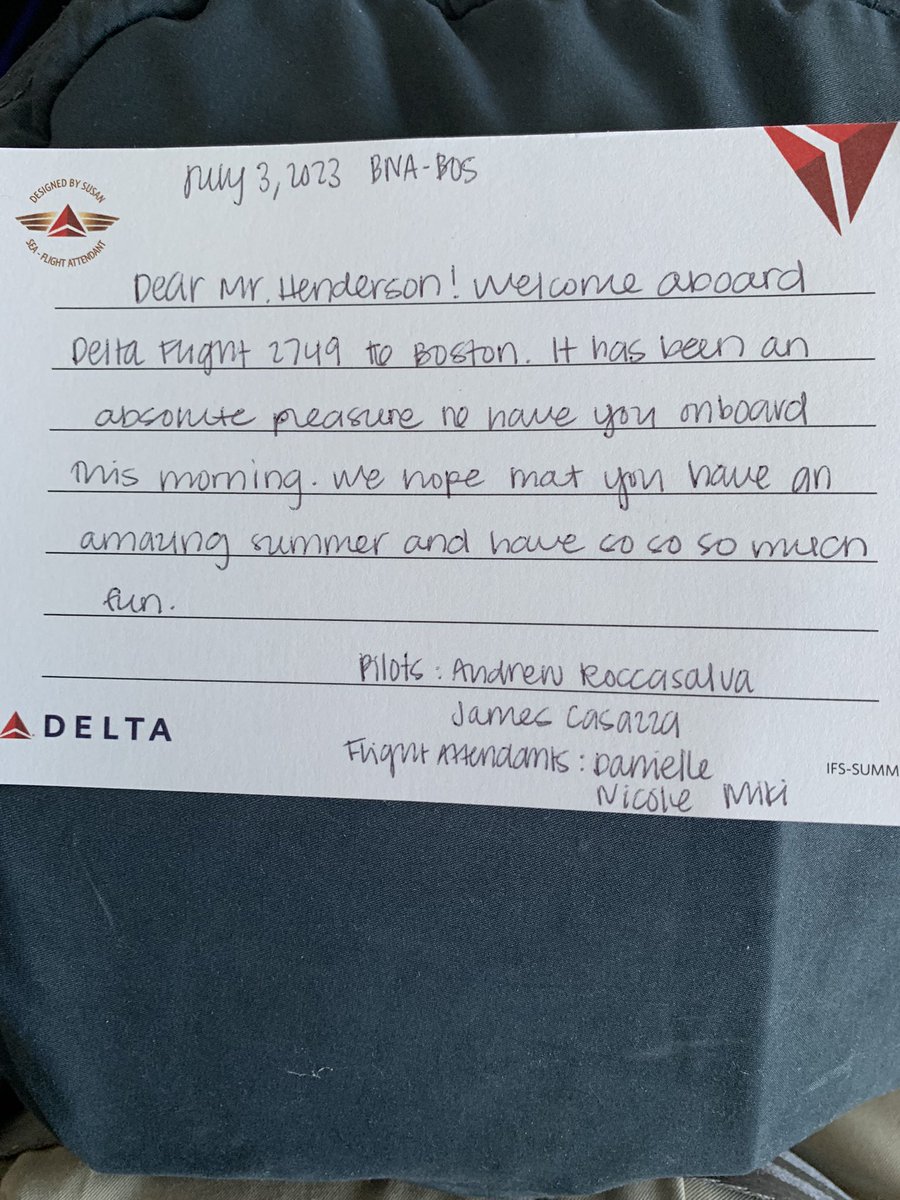 July 3, 2023 BNA-BOS
DESIGNED BY SUSAN
SEA - FLIGHT ATTENDANT
Dear Mr. Henderson! Welcome aboard
Delta Flight 2749 to Boston. It has been an
absolute pleasure to have you onboard
this morning. We hope that you have an
amazing summer and have so so so much
fun.
Pilots: Andrew Roccasalva
James Casazza
Flight Attendants: Danielle
Nicole Miki
DELTA
IFS-SUMM